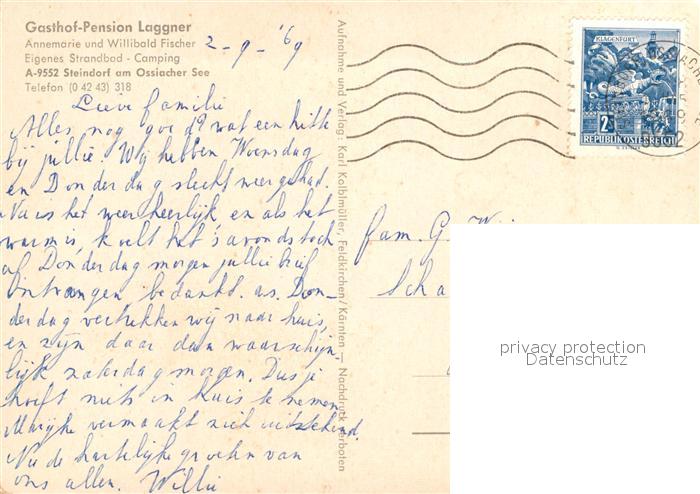 Gasthof-Pension Laggner
Annemarie und Willibald Fischer
Eigenes Strandbad - Camping
A-9552 Steindorf am Ossiacher See
Telefon (0 42 43) 318
2-9-'69
Lieve familie
Alles nog goed? wat een hitte
bij jullie. Wij hebben Woensdag
en Donderdag slecht weer gehad.
Nu is het weer heerlijk en als het
warm is, koelt het 's avonds toch
af. Donderdag morgen jullie brief
ontvangen bedankt. a.s. Don-
derdag vertrekken wij naar huis,
en zijn daar dan waarschijn-
lijk zaterdag morgen. Dus je
hoeft niets in huis te nemen
Marijke vermaakt zich uitstekend.
Nu de hartelijke groeten van
ons allen. Willie
Aufnahme und Verlag: Karl Kolblmüller, Feldkirchen/Kärnten — Nachdruck verboten
KLAGENFURT
2S
REPUBLIK ÖSTERREICH
fam. G.
Scha
privacy protection
Datenschutz